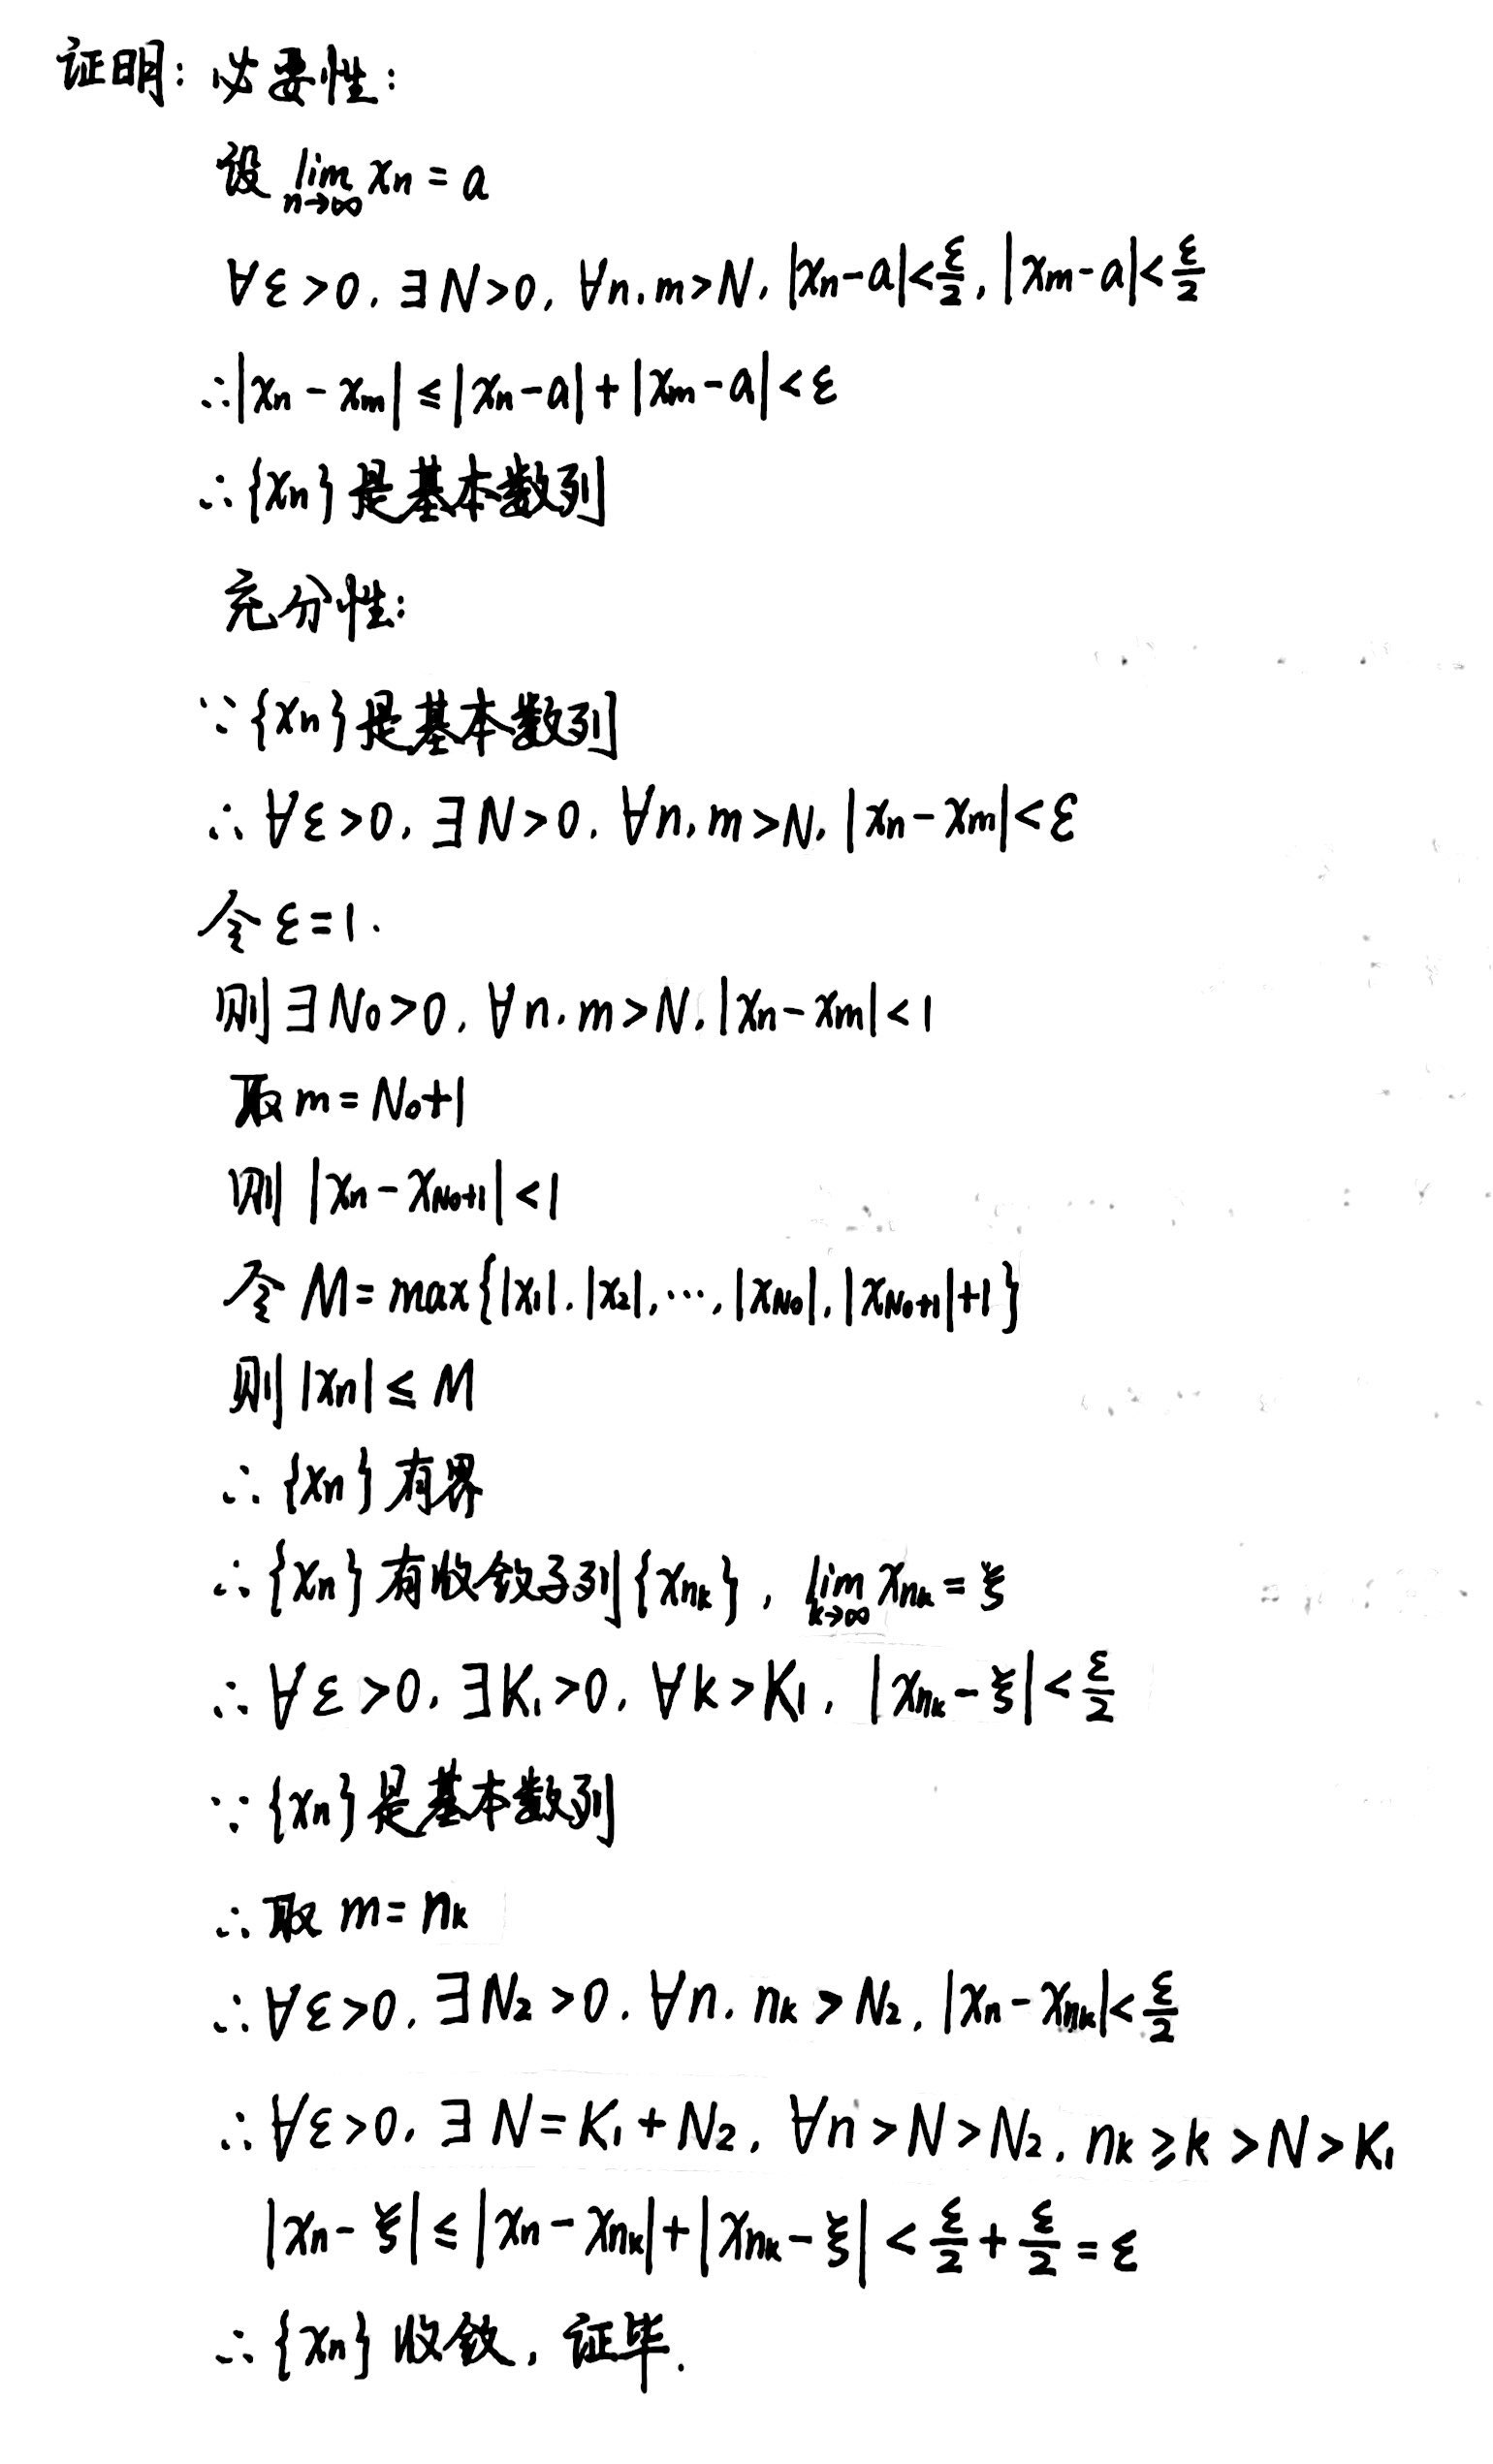 证明：必要性：
设 lim_{n→∞} xn = a
∀ε>0, ∃N>0, ∀n,m>N, |xn-a|<ε/2, |xm-a|<ε/2
∴|xn-xm|≤|xn-a|+|xm-a|<ε
∴{xn}是基本数列
充分性：
∵{xn}是基本数列
∴∀ε>0, ∃N>0, ∀n,m>N, |xn-xm|<ε
令ε=1.
则∃N₀>0, ∀n,m>N, |xn-xm|<1
取m=N₀+1
则|xn-x_{N₀+1}|<1
令M=max{|x₁|,|x₂|,…,|x_{N₀}|,|x_{N₀+1}|+1}
则|xn|≤M
∴{xn}有界
∴{xn}有收敛子列{x_{nk}}, lim_{k→∞} x_{nk}=ξ
∴∀ε>0, ∃K₁>0, ∀k>K₁, |x_{nk}-ξ|<ε/2
∵{xn}是基本数列
∴取m=nk
∴∀ε>0, ∃N₂>0, ∀n,nk>N₂, |xn-x_{nk}|<ε/2
∴∀ε>0, ∃N=K₁+N₂, ∀n>N>N₂, nk≥k>N>K₁
|xn-ξ|≤|xn-x_{nk}|+|x_{nk}-ξ|<ε/2+ε/2=ε
∴{xn}收敛, 证毕.